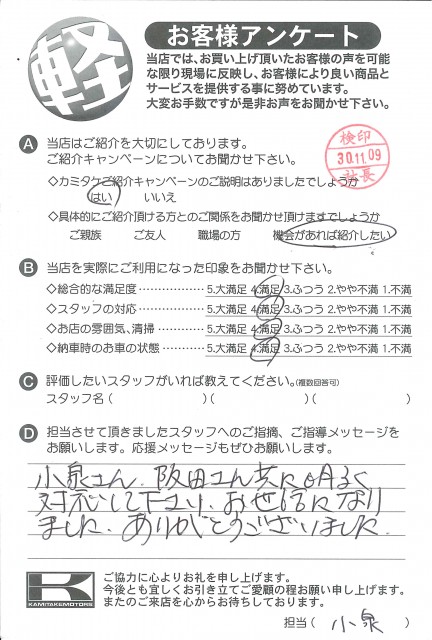 軽
お客様アンケート
当店では、お買い上げ頂いたお客様の声を可能
な限り現場に反映し、お客様により良い商品と
サービスを提供する事に努めています。
大変お手数ですが是非お声をお聞かせ下さい。
A 当店はご紹介を大切にしてあります。
ご紹介キャンペーンについてお聞かせ下さい。
検印
30.11.09
社長
◇カミタケご紹介キャンペーンのご説明はありましたでしょうか
はい いいえ
◇具体的にご紹介頂ける方とのご関係をお聞かせ頂けますでしょうか
ご親族 ご友人 職場の方 機会があれば紹介したい
B 当店を実際にご利用になった印象をお聞かせ下さい。
◇総合的な満足度 5.大満足 4.満足 3.ふつう 2.やや不満 1.不満
◇スタッフの対応 5.大満足 4.満足 3.ふつう 2.やや不満 1.不満
◇お店の雰囲気、清掃 5.大満足 4.満足 3.ふつう 2.やや不満 1.不満
◇納車時のお車の状態 5.大満足 4.満足 3.ふつう 2.やや不満 1.不満
C 評価したいスタッフがいれば教えてください。(複数回答可)
スタッフ名( )( )( )
D 担当させて頂きましたスタッフへのご指摘、ご指導メッセージを
お願いします。応援メッセージもぜひお願いします。
小泉さん、阪田さん共に明るく
対応して下さり、お世話になり
ました。ありがとうございました。
K
KAMITAKEMOTORS
ご協力に心よりお礼を申し上げます。
今後とも宜しくお引き立てご愛顧の程お願い申し上げます。
またのご来店を心からお待ちしております。
担当( 小泉 )